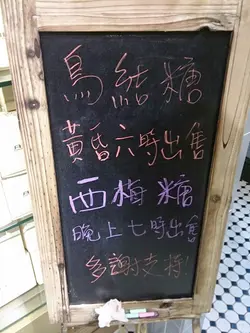 鳥結糖
黃昏六時出售
西梅糖
晚上七時出售
多謝支持!